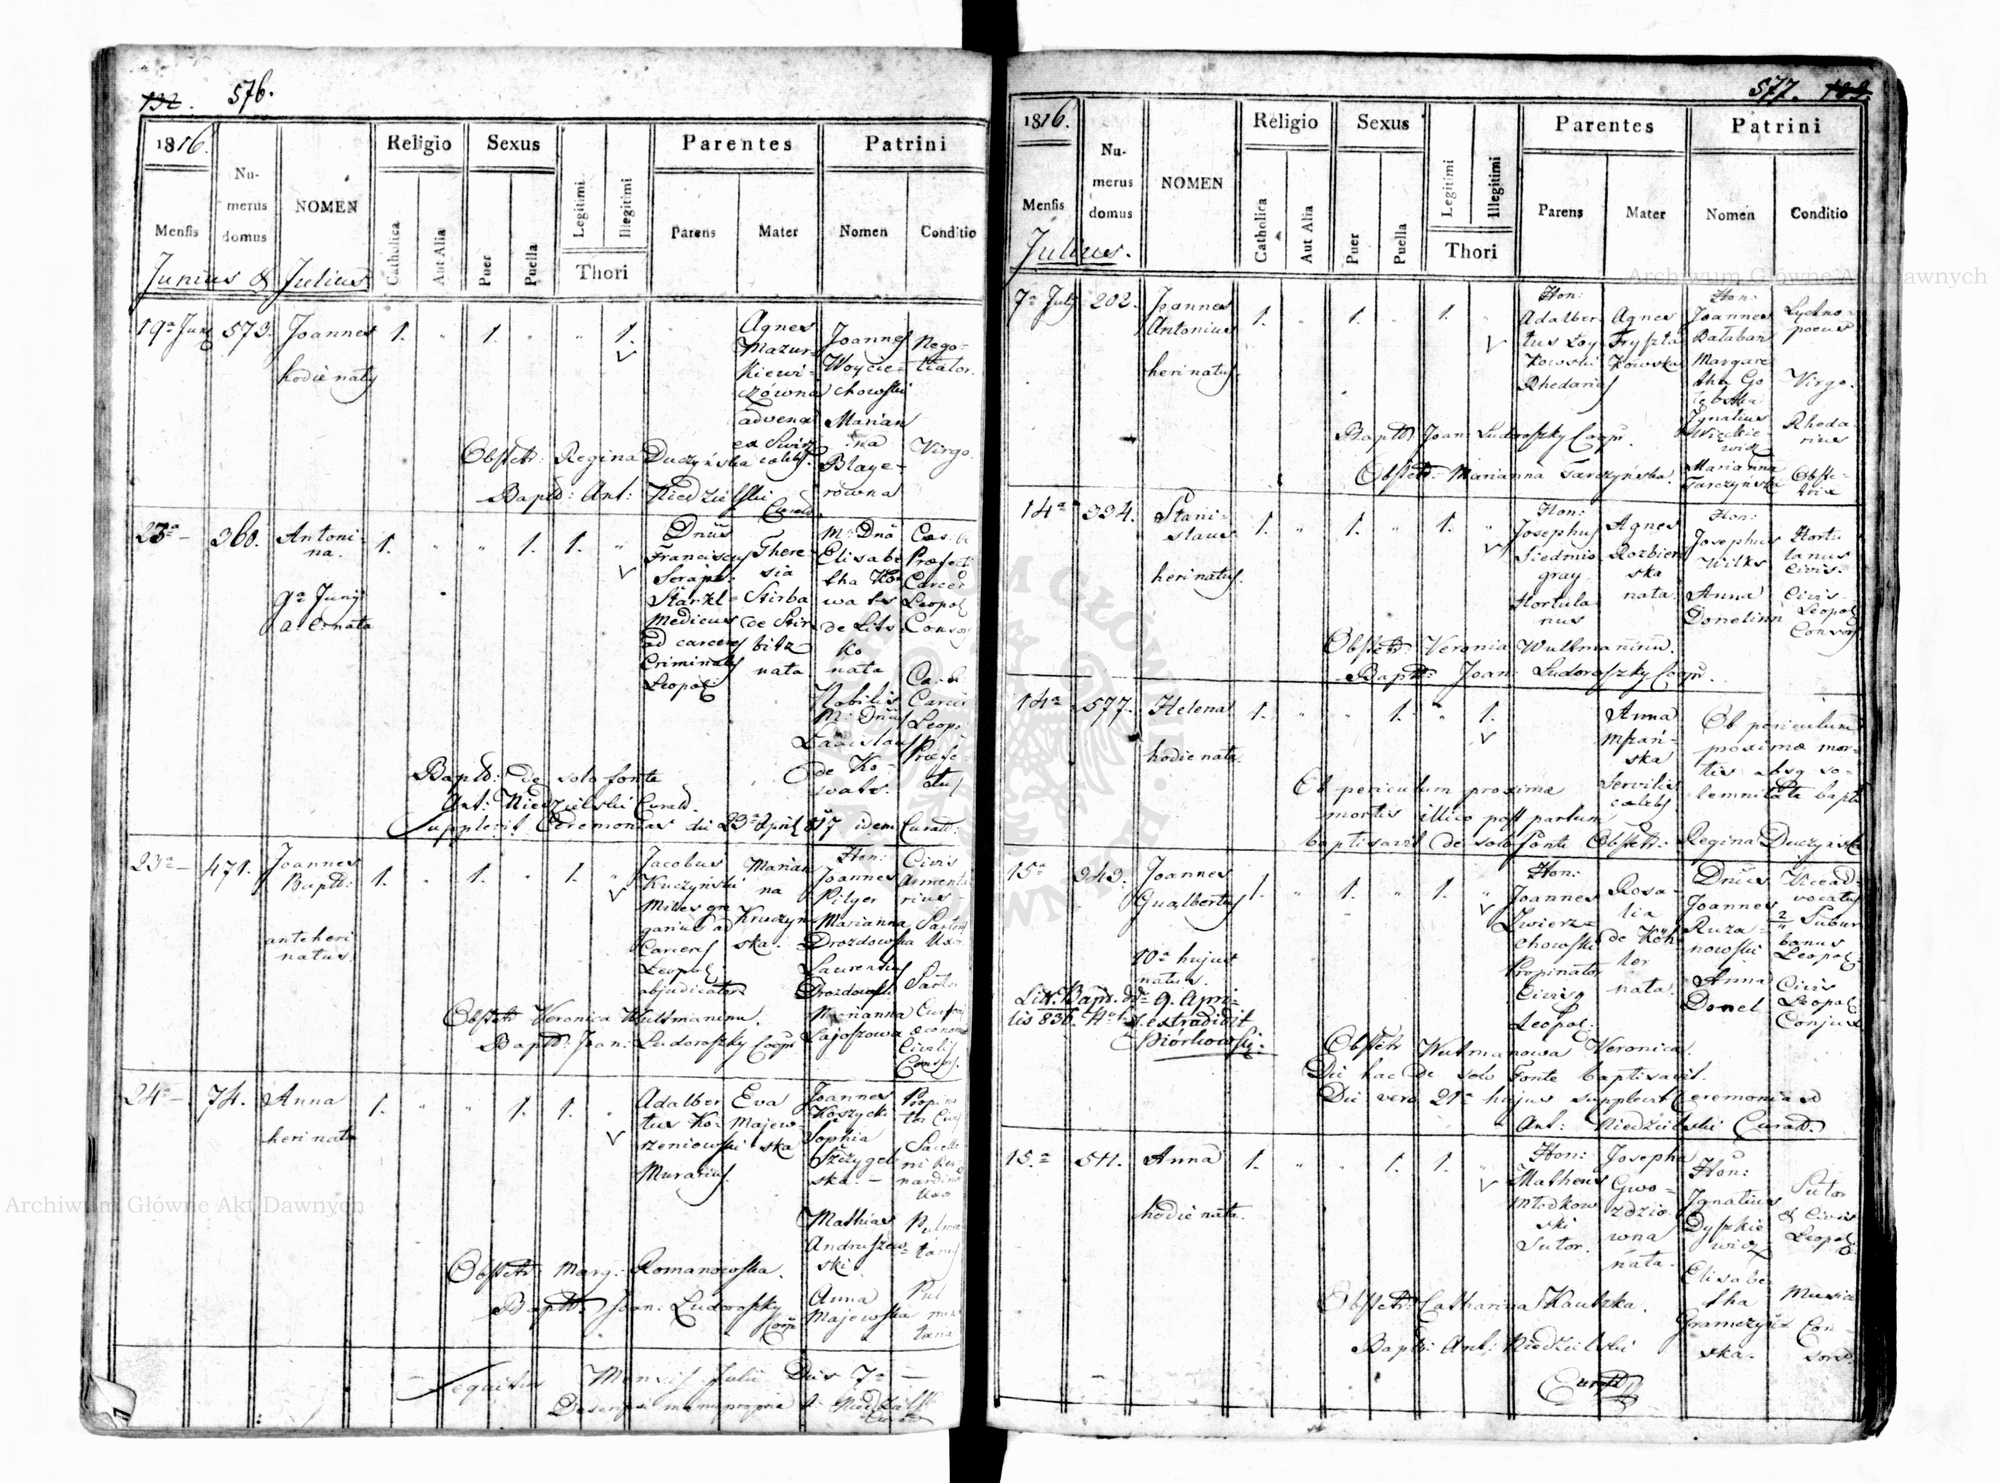 132. 576.
1816.
Mensis
Numerus domus
NOMEN
Religio
Catholica
Aut Alia
Sexus
Puer
Puella
Legitimi
Illegitimi
Thori
Parentes
Parens
Mater
Patrini
Nomen
Conditio
Junius & Julius
19a Junij 573. Joannes
hodie natus
1. " 1. " " 1.
Agnes
Mazur-
kiewi-
czówna
advena
Joannes
Woycie-
chowski
Marian
na
Blaye-
równa
Nego-
tiator.
Virgo.
Obstetr: Regina Duczyńska
Bapt: Ant: Niedzielski
Curat.
23a — 360. Antoni-
na.
9a Junij
a. c. nata
1. " " 1. 1. "
Dnus
Franciscus
Seraph:
Starkl
Medicus
ad carceres
Criminales
Leopol:
There-
sia
Stirba
de Stir-
bitz
nata
M: Dna
Elisabe
tha Ko-
wats
de Lits-
ko
nata
Nobilis
M: Dnus
Ladislaus
de Ko-
wats.
Præfecti
Carcer
Leopol
Consors
Carcer
Leopol:
Præfe-
ctus
Bapt: de solo fonte
Ant: Niedzielski Curat.
Supplevit Ceremonias die 23a April 817 idem Curat.
23a — 471. Joannes
Bapt:
anteheri
natus.
1. " 1. " 1. "
Jacobus
Kuczyński
Miles gre
garius ad
Carceres
Leopol:
abjudicatos
Marian
na
Kruczyn
ska.
Hon:
Joannes
Pilger
Marianna
Drozdowska
Laurentius
Drozdowski
Marianna
Civis
Armenta
rius
Sartor
Civilis
Consors.
Obstetr Veronica Wultmaninn.
Bapt: Joan: Ludorofzky Coop:
24a — 74. Anna
heri nata
1. " " 1. 1. "
Adalber
tus Ko-
rzeniowski
Murarius.
Eva
Majew-
ska
Joannes
Koszycki
Sophia
Szczygel-
ska. —
Mathias
Andruszew-
ski
Anna
Majewska
Propina
tor
Obstetr: Marg: Romanowska.
Bapt: Joan: Ludorofzky
Coop:
Sequitur Mensis Julii Dies 7a —
Descripsi manu propria A. Niedzielski
577.
1816.
Mensis
Numerus domus
NOMEN
Religio
Catholica
Aut Alia
Sexus
Puer
Puella
Legitimi
Illegitimi
Thori
Parentes
Parens
Mater
Patrini
Nomen
Conditio
Julius.
7a July 202. Joannes
Antonius
heri natus.
1. " 1. " 1. "
Hon:
Adalber
tus Loy
kowski
Rhedarius
Agnes
Fryszta
kowska
Hon:
Joannes
Bataban
Margare
tha Go
lębska
Ignatius
Więckie-
wicz
Marianna
Tarczyńska
Lychno-
poeus
Virgo.
Rheda-
rius
Obste-
trix
Bapt: Joan: Ludorofzky Coop:
Obstetr: Marianna Tarczyńska.
14a 394. Stani-
slaus
heri natus.
1. " 1. " 1. "
Hon:
Josephus
Siedmio
gray
Hortula
nus
Agnes
Rozbier
ska
nata
Hon:
Josephus
Wilks
Anna
Donelinn
Hortu
lanus
Civis.
Civis
Leopol
Consors
Obstetr: Veronica Wultmaninn.
Bapt: Joan: Ludorofzky Coop:
14a 577. Helena
hodie nata.
1. " " 1. " 1.
Anna
Mszań-
ska
Servilis
cælebs
Ob periculum
proximæ mor-
tis absq so-
lemnitate bapt
Ob periculum proximæ
mortis illico post partum
baptisavit de solo fonte Obstetr: Regina Duczyńska
15a 343. Joannes
Gualbertus
10a hujus
natus.
1. " 1. " 1. "
Hon:
Joannes
Zwierz-
chowski
Propinator
Civis
Leopol:
Rosa-
lia
de Köh-
ler
nata.
Dnus
Joannes
Ruza-
nowski
Anna
Donel
Vicead-
vocatus
Subur
banus
Leopol
Civis
Leopol
Conjux
Litt. Bapt. dto 9. Apri-
lis 836. extradidit
Piórkowski.
Obstetr Wutmanowa Veronica.
Die hac de solo Fonte baptisavit.
Die vero 21a hujus supplevit Ceremonias
Ant: Niedzielski Curat.
15.a 511. Anna
hodie nata.
1. " " 1. 1. "
Hon:
Matheus
Młodkow
ski
Sutor.
Josepha
Gwo-
zdzio
wna
nata.
Hon:
Ignatius
Dyszkie
wicz
Elisabe-
tha
Gramczyń-
ska.
Sutor
& Civis
Leopol:
Musici
Con-
sors.
Obstetr: Catharina Kautzka.
Bapt: Ant: Niedzielski
Curat
Archiwum Główne Akt Dawnych
Archiwum Główne Akt Dawnych